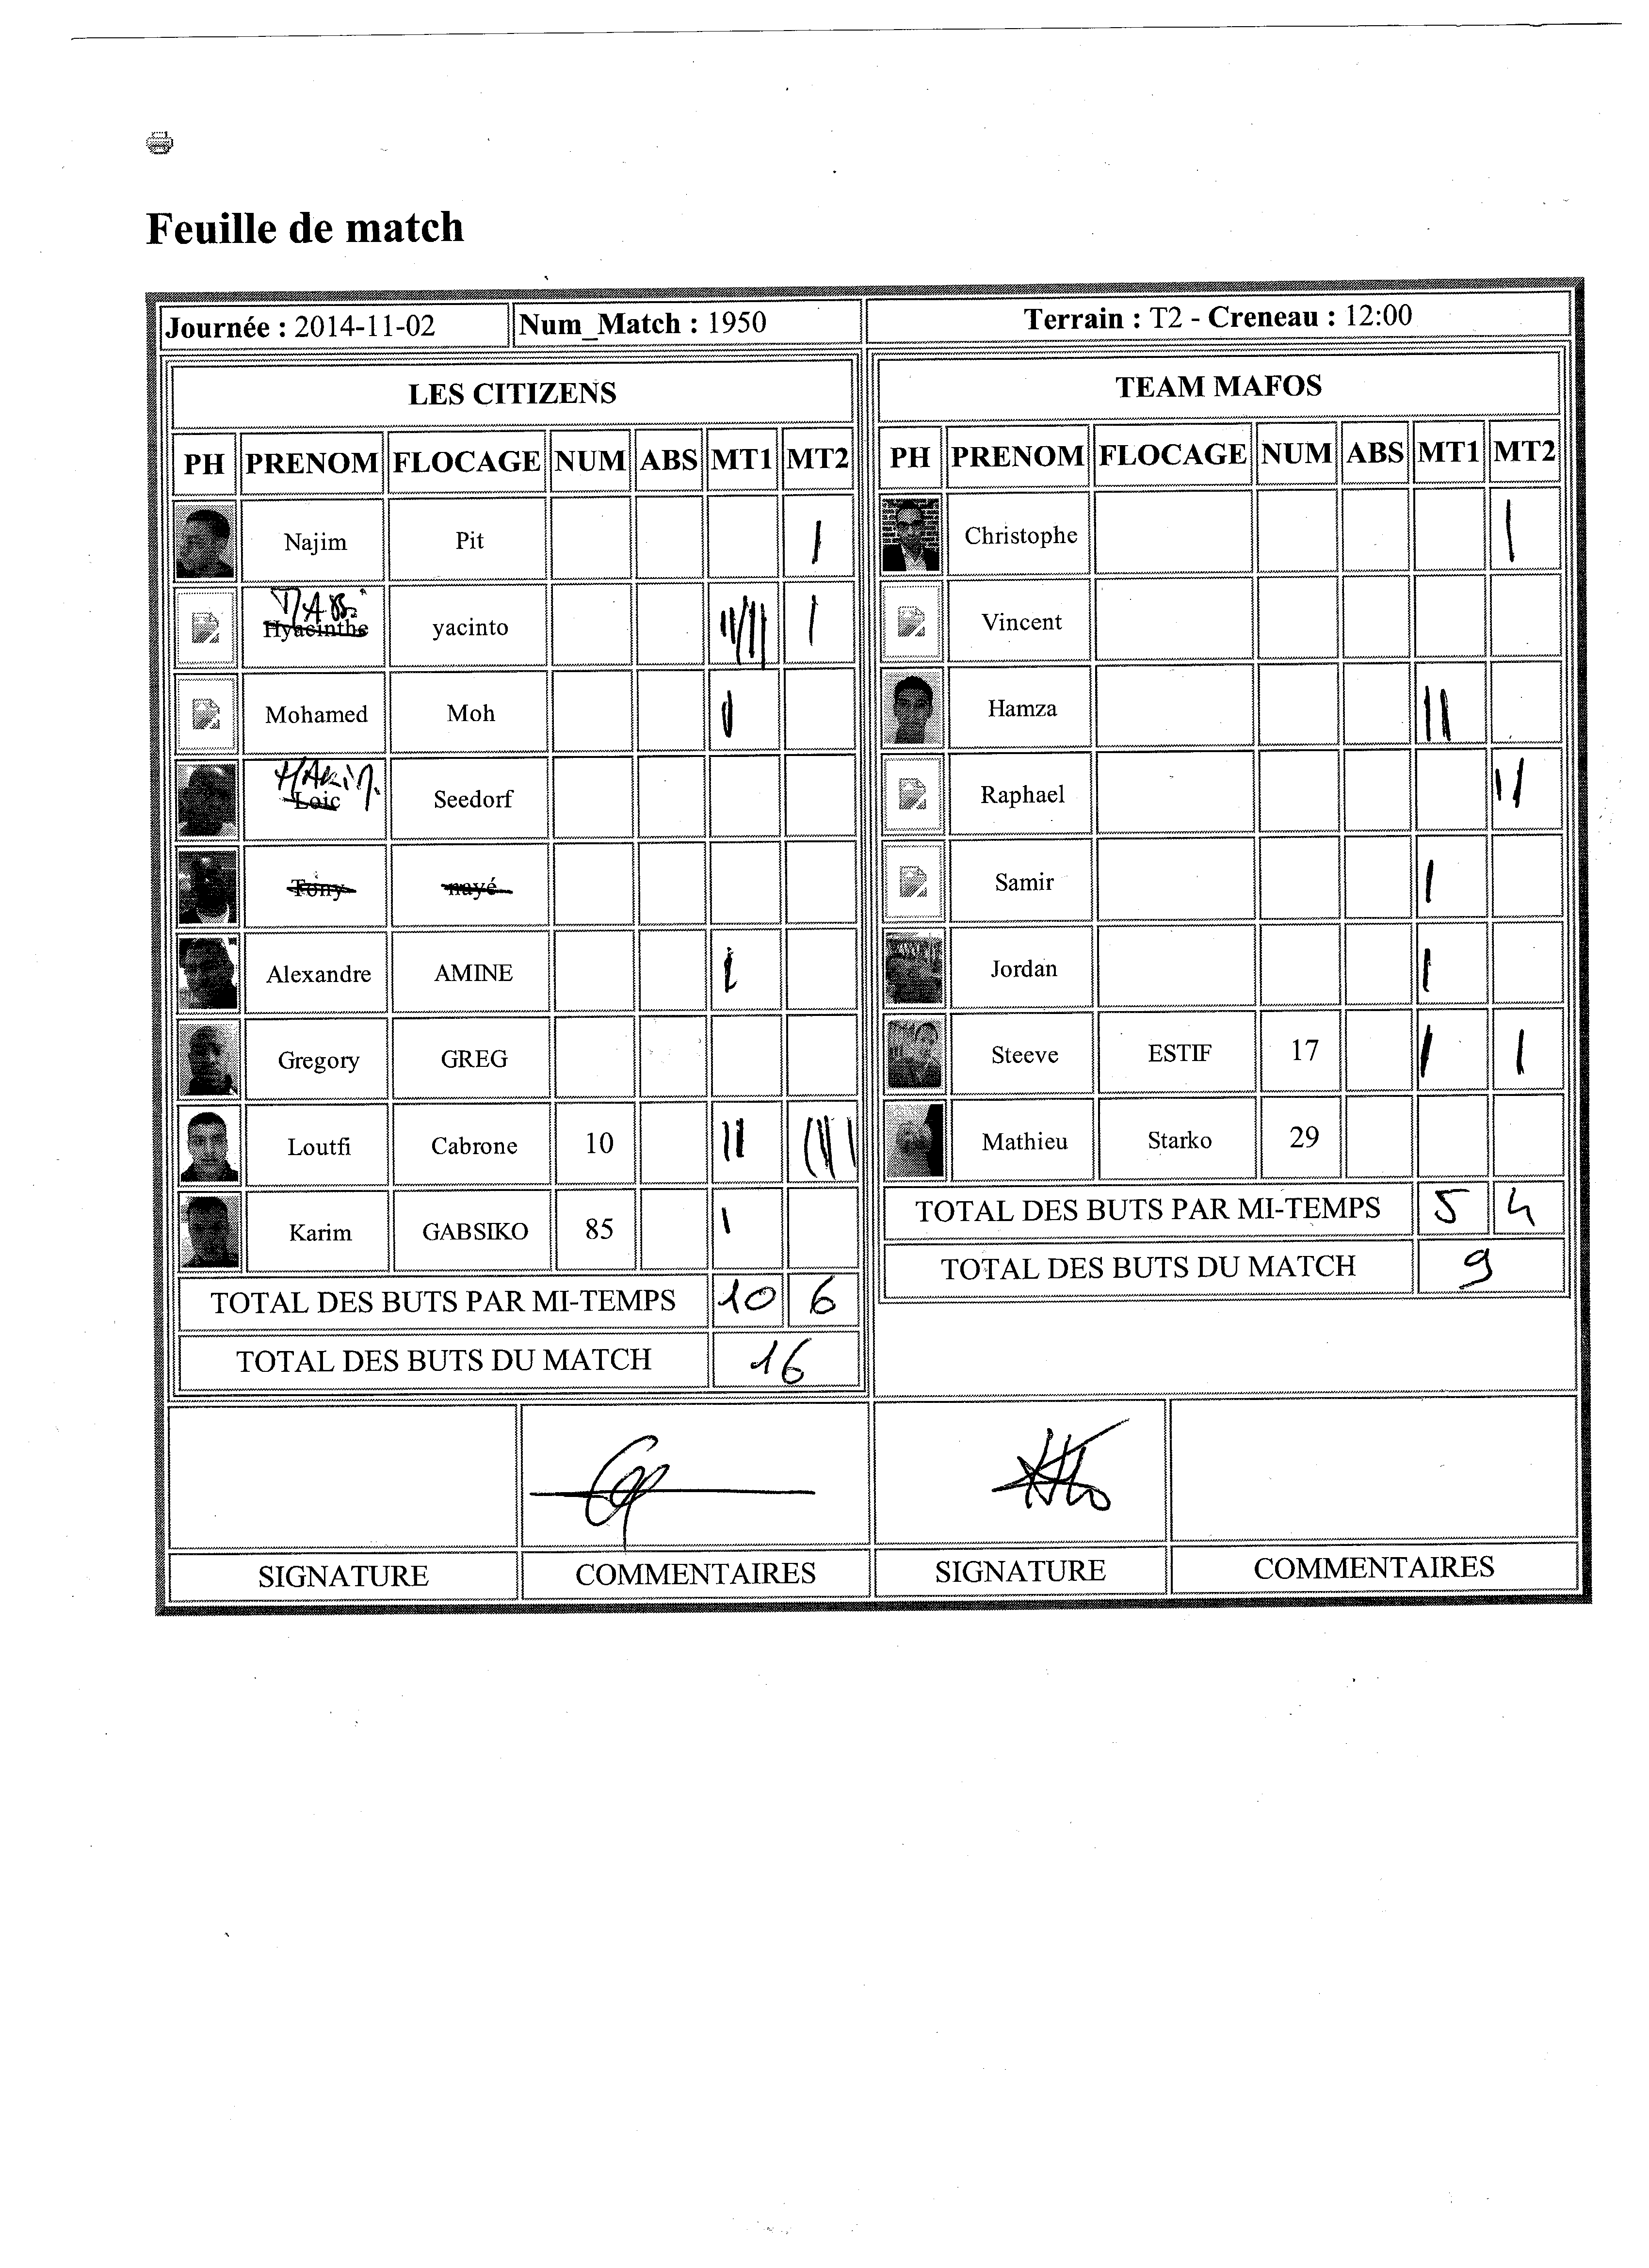 Feuille de match
Journée : 2014-11-02 Num_Match : 1950 Terrain : T2 - Creneau : 12:00
LES CITIZENS
PH PRENOM FLOCAGE NUM ABS MT1 MT2
Najim Pit
Hyacinthe yacinto
Mohamed Moh
HAKiM.
Loic Seedorf
Tony nayé
Alexandre AMINE
Gregory GREG
Loutfi Cabrone 10
Karim GABSIKO 85
TOTAL DES BUTS PAR MI-TEMPS 10 6
TOTAL DES BUTS DU MATCH 16
TEAM MAFOS
PH PRENOM FLOCAGE NUM ABS MT1 MT2
Christophe
Vincent
Hamza
Raphael
Samir
Jordan
Steeve ESTIF 17
Mathieu Starko 29
TOTAL DES BUTS PAR MI-TEMPS 5 4
TOTAL DES BUTS DU MATCH 9
SIGNATURE COMMENTAIRES SIGNATURE COMMENTAIRES